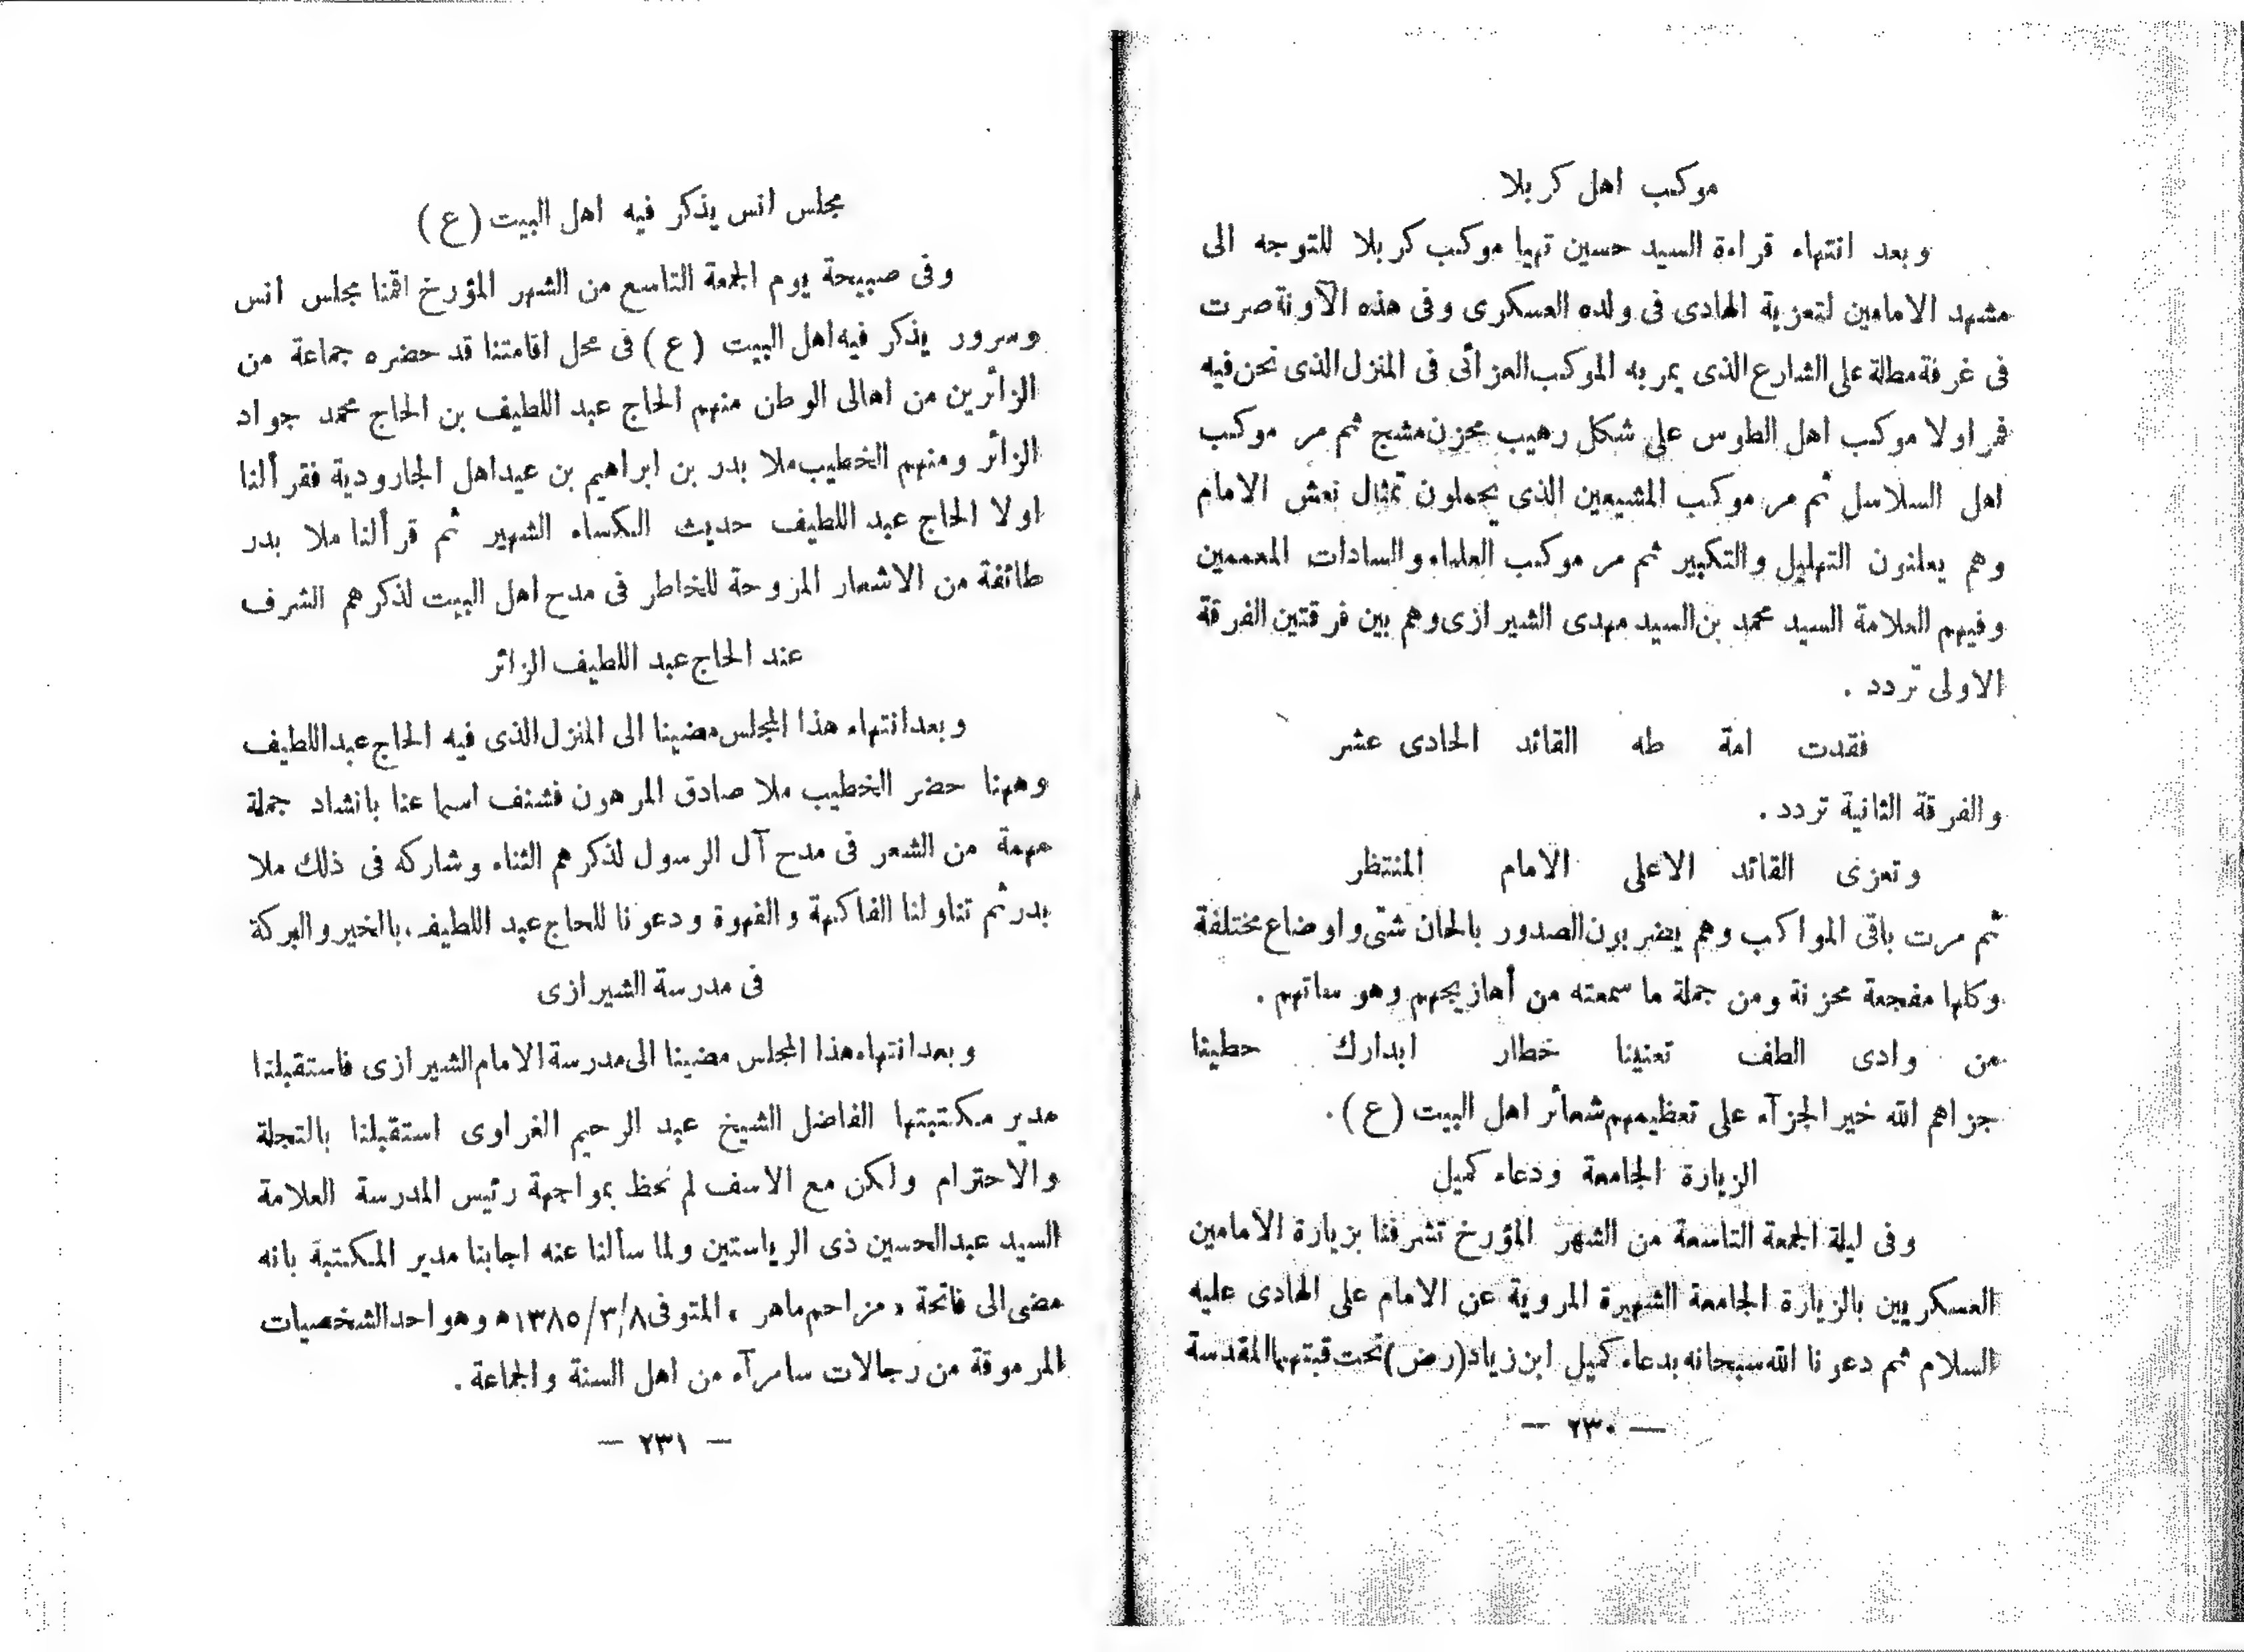 موكب اهل كربلا
وبعد انتهاء قراءة السيد حسين تهيا موكب كربلا للتوجه الى
مشهد الامامين لتعزية الهادى فى ولده العسكرى وفى هذه الآونة صرت
فى غرفة مطالة على الشارع الذى يمر به الموكب العزائى فى المنزل الذى نحن فيه
فمر اولا موكب اهل الطوس على شكل رهيب محزن مشج ثم مر موكب
اهل السلاسل ثم مر موكب المشيعين الذى يحملون تمثال نعش الامام
وهم يعلنون التهليل والتكبير ثم مر موكب العلماء والسادات المعممين
وفيهم العلامة السيد محمد بن السيد مهدى الشيرازى وهم بين فرقتين الفرقة
الاولى تردد .
فقدت امة طه القائد الحادى عشر
والفرقة الثانية تردد .
وتعزى القائد الاعلى الامام المنتظر
ثم مرت باقى المواكب وهم يضربون الصدور بالحان شتى واوضاع مختلفة
وكلها مفجعة محزنة ومن جملة ما سمعته من أهازيجهم وهو ساتهم .
من وادى الطف تعنينا خطار ابدارك حطينا
جزاهم الله خير الجزآء على تعظيمهم شعائر اهل البيت (ع) .
الزيارة الجامعة ودعاء كميل
وفى ليلة الجمعة التاسعة من الشهر المؤرخ تشرفنا بزيارة الامامين
العسكريين بالزيارة الجامعة الشهيرة المروية عن الامام على الهادى عليه
السلام ثم دعونا الله سبحانه بدعاء كميل ابن زياد (رض) تحت قبتهما المقدسة
— ٢٣٠ —
مجلس انس يذكر فيه اهل البيت (ع)
وفى صبيحة يوم الجمعة التاسع من الشهر المؤرخ اقمنا مجلس انس
وسرور يذكر فيه اهل البيت (ع) فى محل اقامتنا قد حضره جماعة من
الزائرين من اهالى الوطن منهم الحاج عبد اللطيف بن الحاج محمد جواد
الزائر ومنهم الخطيب ملا بدر بن ابراهيم بن عيد اهل الجارودية فقرألنا
اولا الحاج عبد اللطيف حديث الكساء الشهير ثم قرألنا ملا بدر
طائفة من الاشعار المزوحة للخاطر فى مدح اهل البيت لذكرهم الشرف
عند الحاج عبد اللطيف الزائر
وبعد انتهاء هذا المجلس مضينا الى المنزل الذى فيه الحاج عبد اللطيف
وههنا حضر الخطيب ملا صادق المرهون فشنف اسماعنا بانشاد جملة
مهمة من الشعر فى مدح آل الرسول لذكرهم الثناء وشاركه فى ذلك ملا
بدر ثم تناولنا الفاكهة والقهوة ودعونا للحاج عبد اللطيف بالخير والبركة
فى مدرسة الشيرازى
وبعد انتهاء هذا المجلس مضينا الى مدرسة الامام الشيرازى فاستقبلنا
مدير مكتبتها الفاضل الشيخ عبد الرحيم الغراوى استقبلنا بالتجلة
والاحترام ولكن مع الاسف لم نحظ بمواجهة رئيس المدرسة العلامة
السيد عبد الحسين ذى الرياستين ولما سألنا عنه اجابنا مدير المكتبة بانه
مضى الى فاتحة « مزاحم ماهر » المتوفى ١٣٨٥/٣/٨ه وهو احد الشخصيات
المرموقة من رجالات سامرآء من اهل السنة والجماعة .
— ٢٣١ —